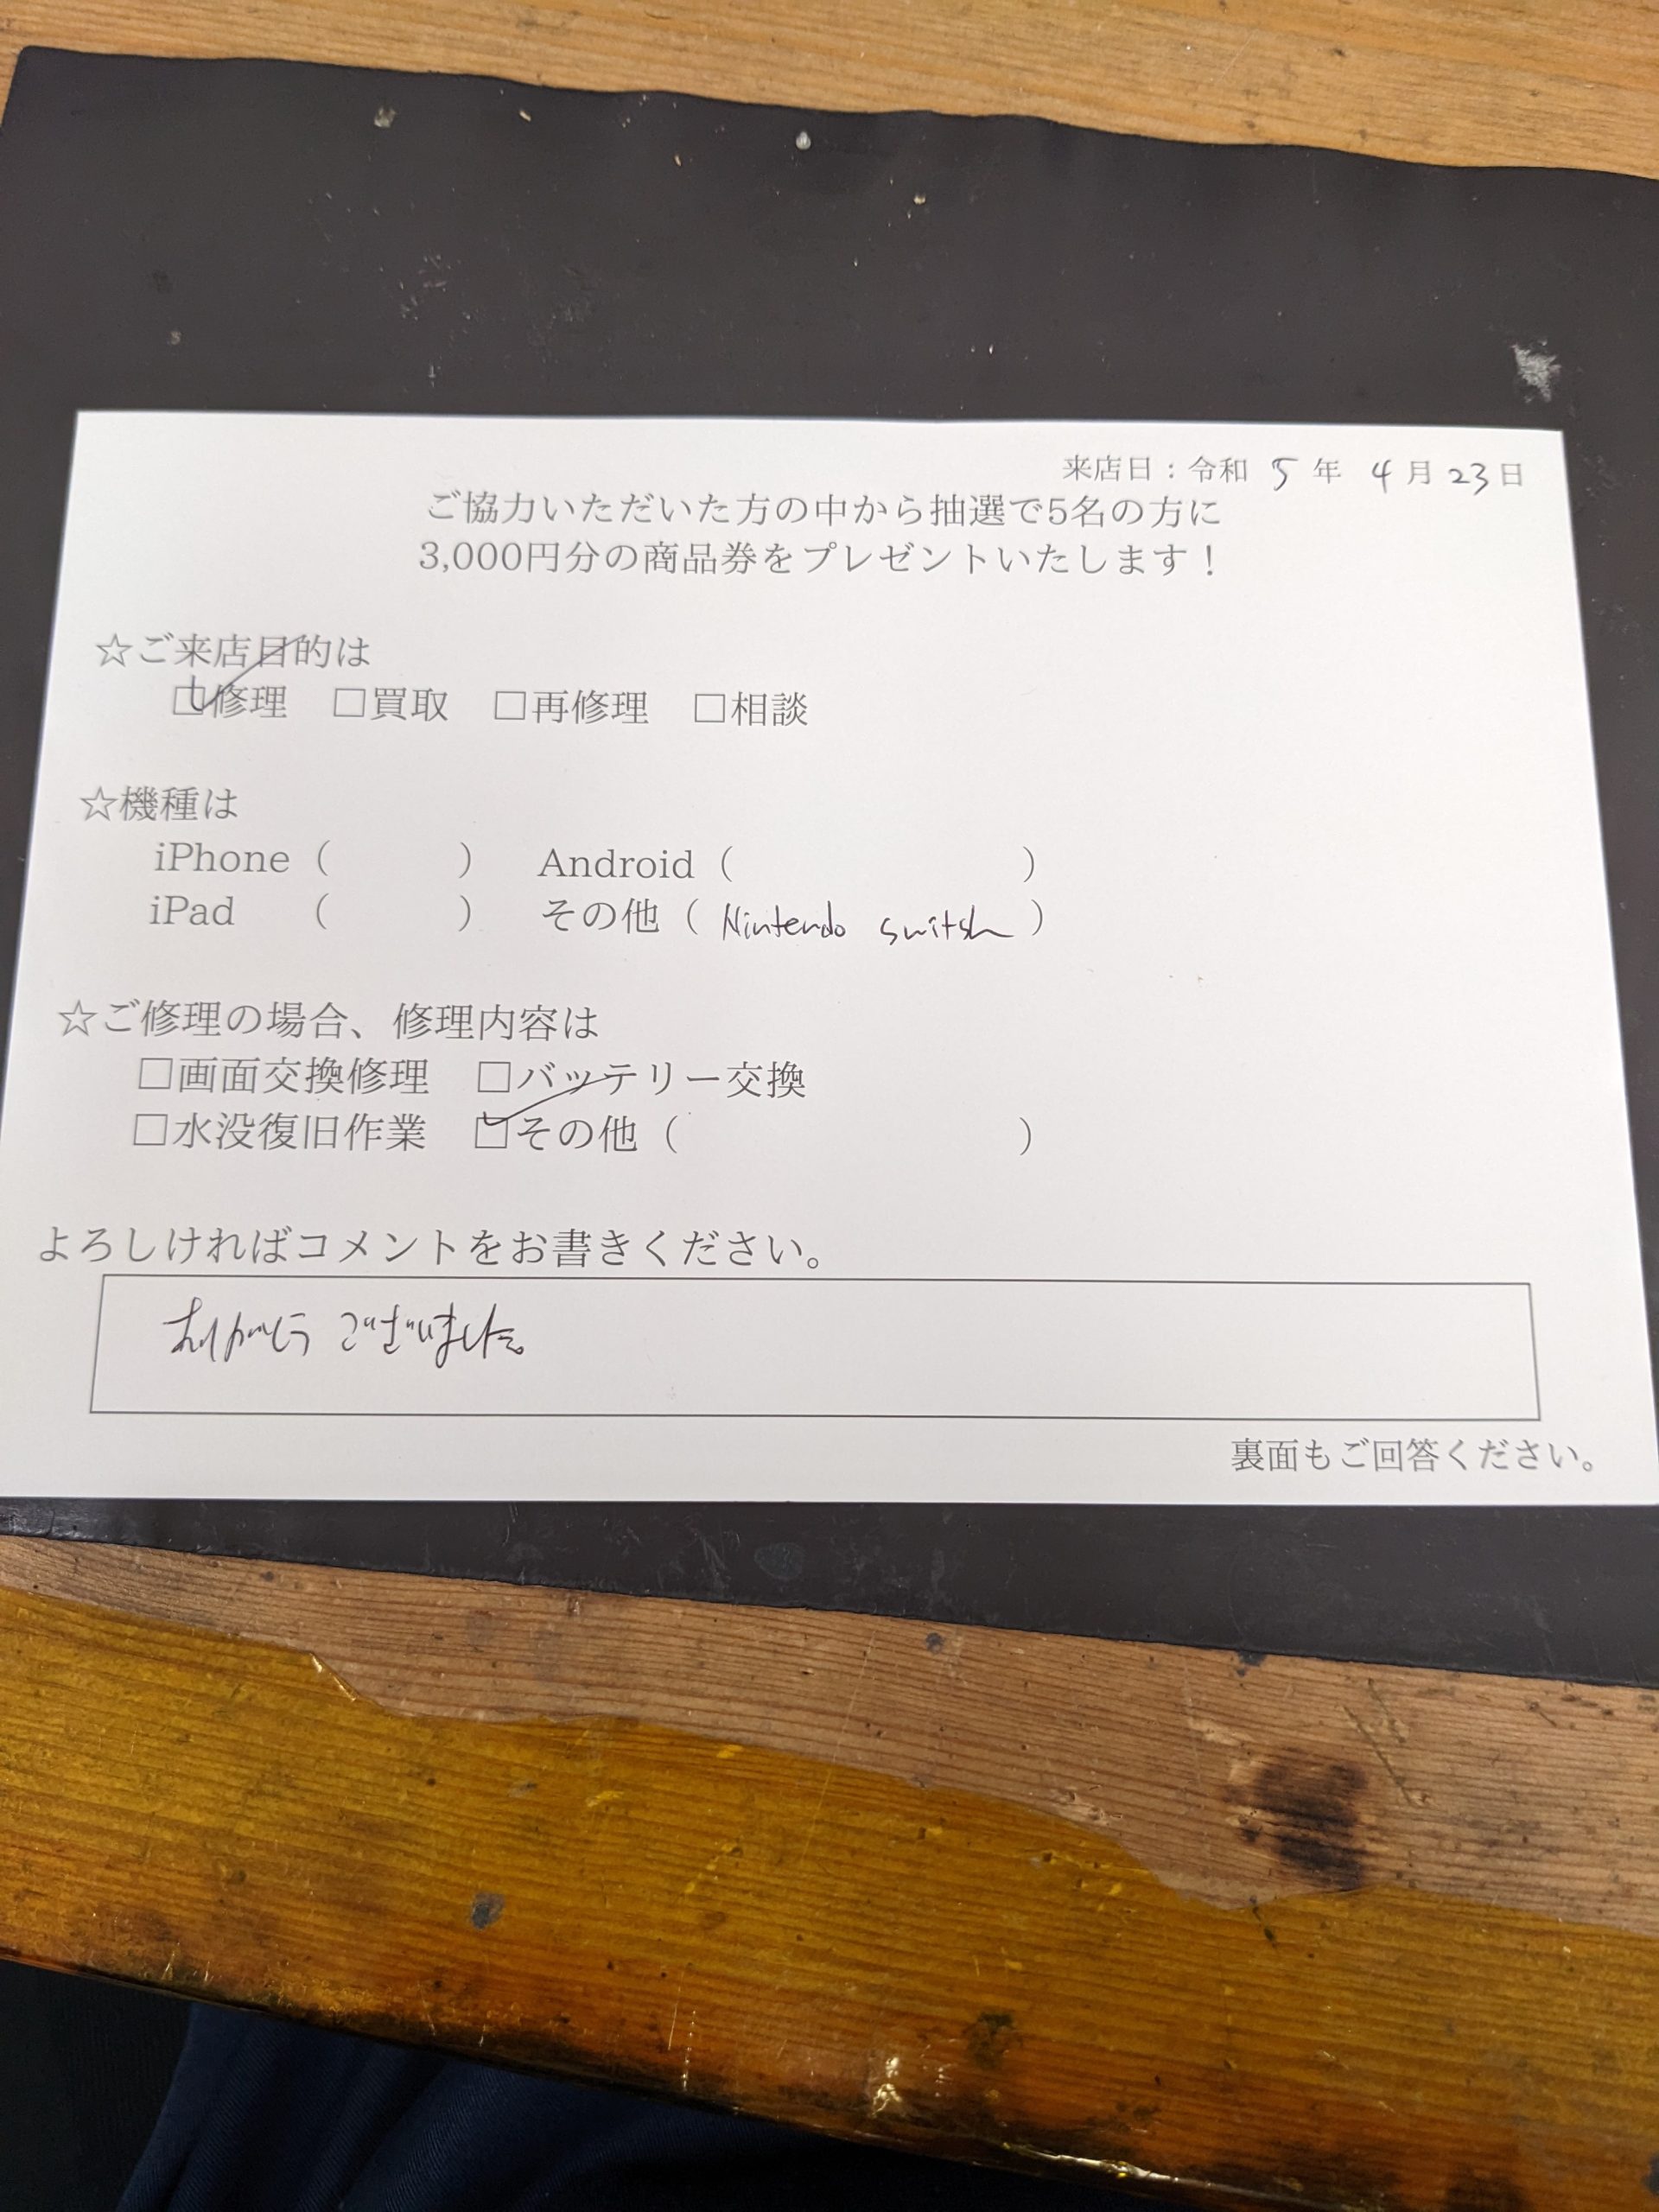 来店日：令和 5 年 4 月 23 日
ご協力いただいた方の中から抽選で5名の方に
3,000円分の商品券をプレゼントいたします！
☆ご来店目的は
☑修理 □買取 □再修理 □相談
☆機種は
iPhone（　　　） Android（　　　　　　　）
iPad （　　　） その他（Nintendo switsh）
☆ご修理の場合、修理内容は
□画面交換修理 □バッテリー交換
□水没復旧作業 ☑その他（　　　　　　　）
よろしければコメントをお書きください。
ありがとうございました。
裏面もご回答ください。